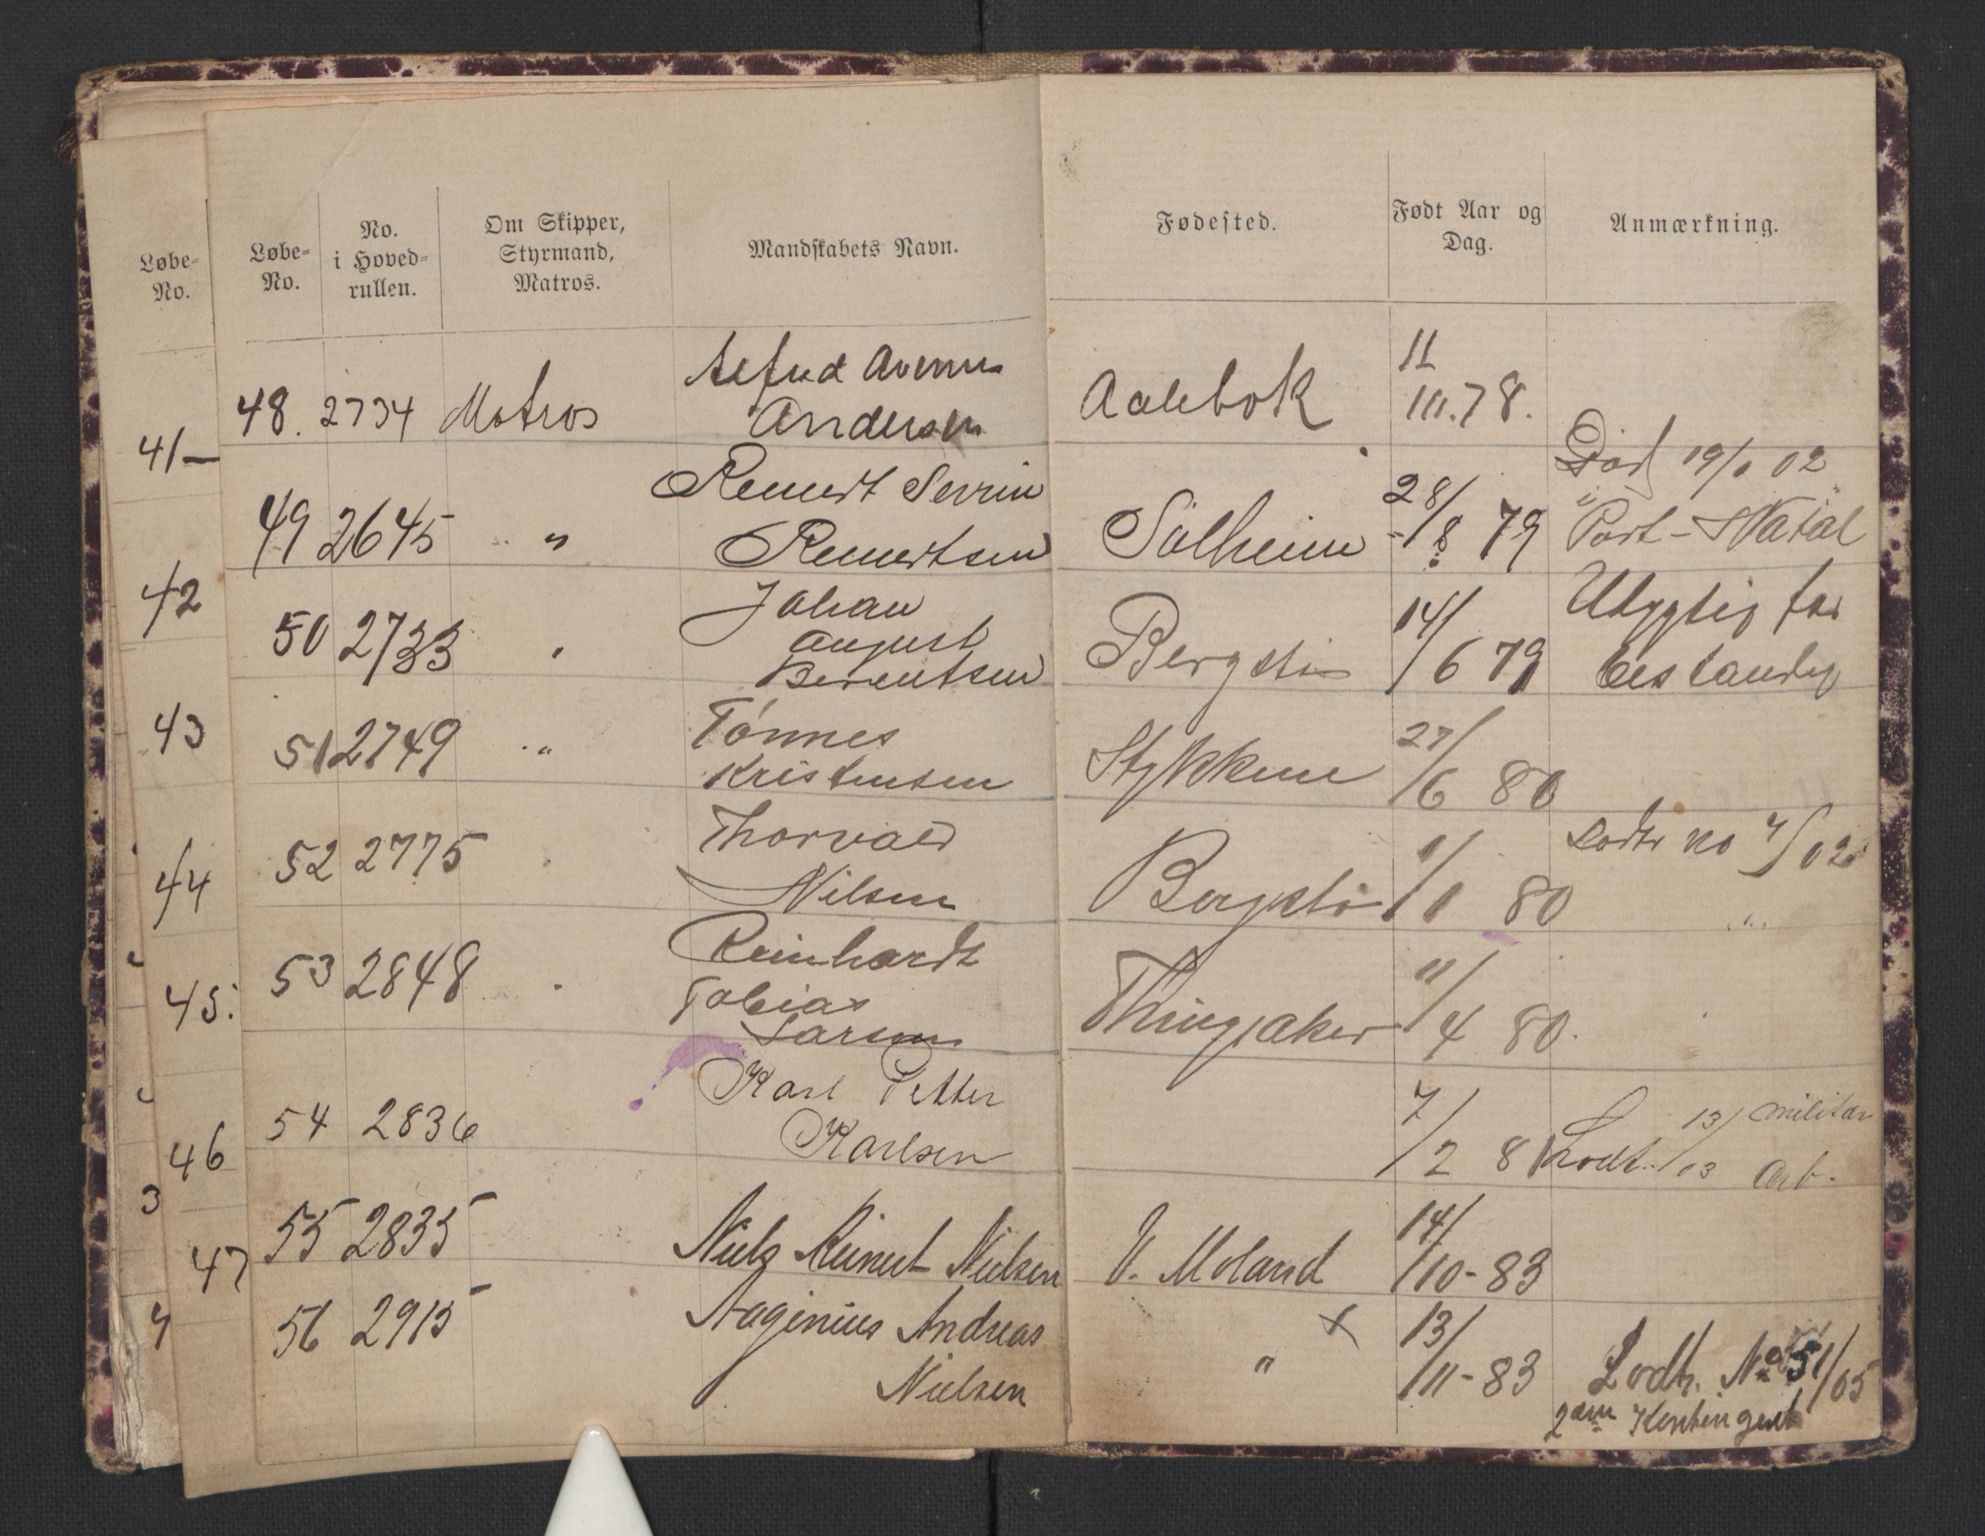 Løbe-
No.
Løbe-
No.
No.
i Hoved-
rullen.
Om Skipper,
Styrmand,
Matros.
Mandskabets Navn.
Fødested.
Født Aar og
Dag.
Anmærkning.
41—
42
43
44
45.
46
47
3
4
48. 2734 Matros
Andersen
11
10.78.
49 2645 "
Reinert Severin
Reinertsen
Solheim
28/8 79
Død 19/ 02
i Port-Natal
50 2733 "
Johan
August
Berentsen
14/6 79
Udygtig for
bestandig
51 2749 "
Tønnes
Kristensen
Stykkene
27/6 80
52 2775 "
Thorvald
Nilsen
Bergstø
80
Lodtr no 7/02
"
53 2848 "
Reinhardt
Tobias
Larsen
Thingsaker
11/4 80.
54 2836
Karl Petter
Karlsen
7/2 81
Lodt. 13/03 militær
Arb.
55 2835
Niels Reinert Nielsen
V. Moland
14/10-83
56 2915
Aagenius Andreas
Nielsen
"
x
13/11-83
Lodtr. No 51/05
2den Kontingent